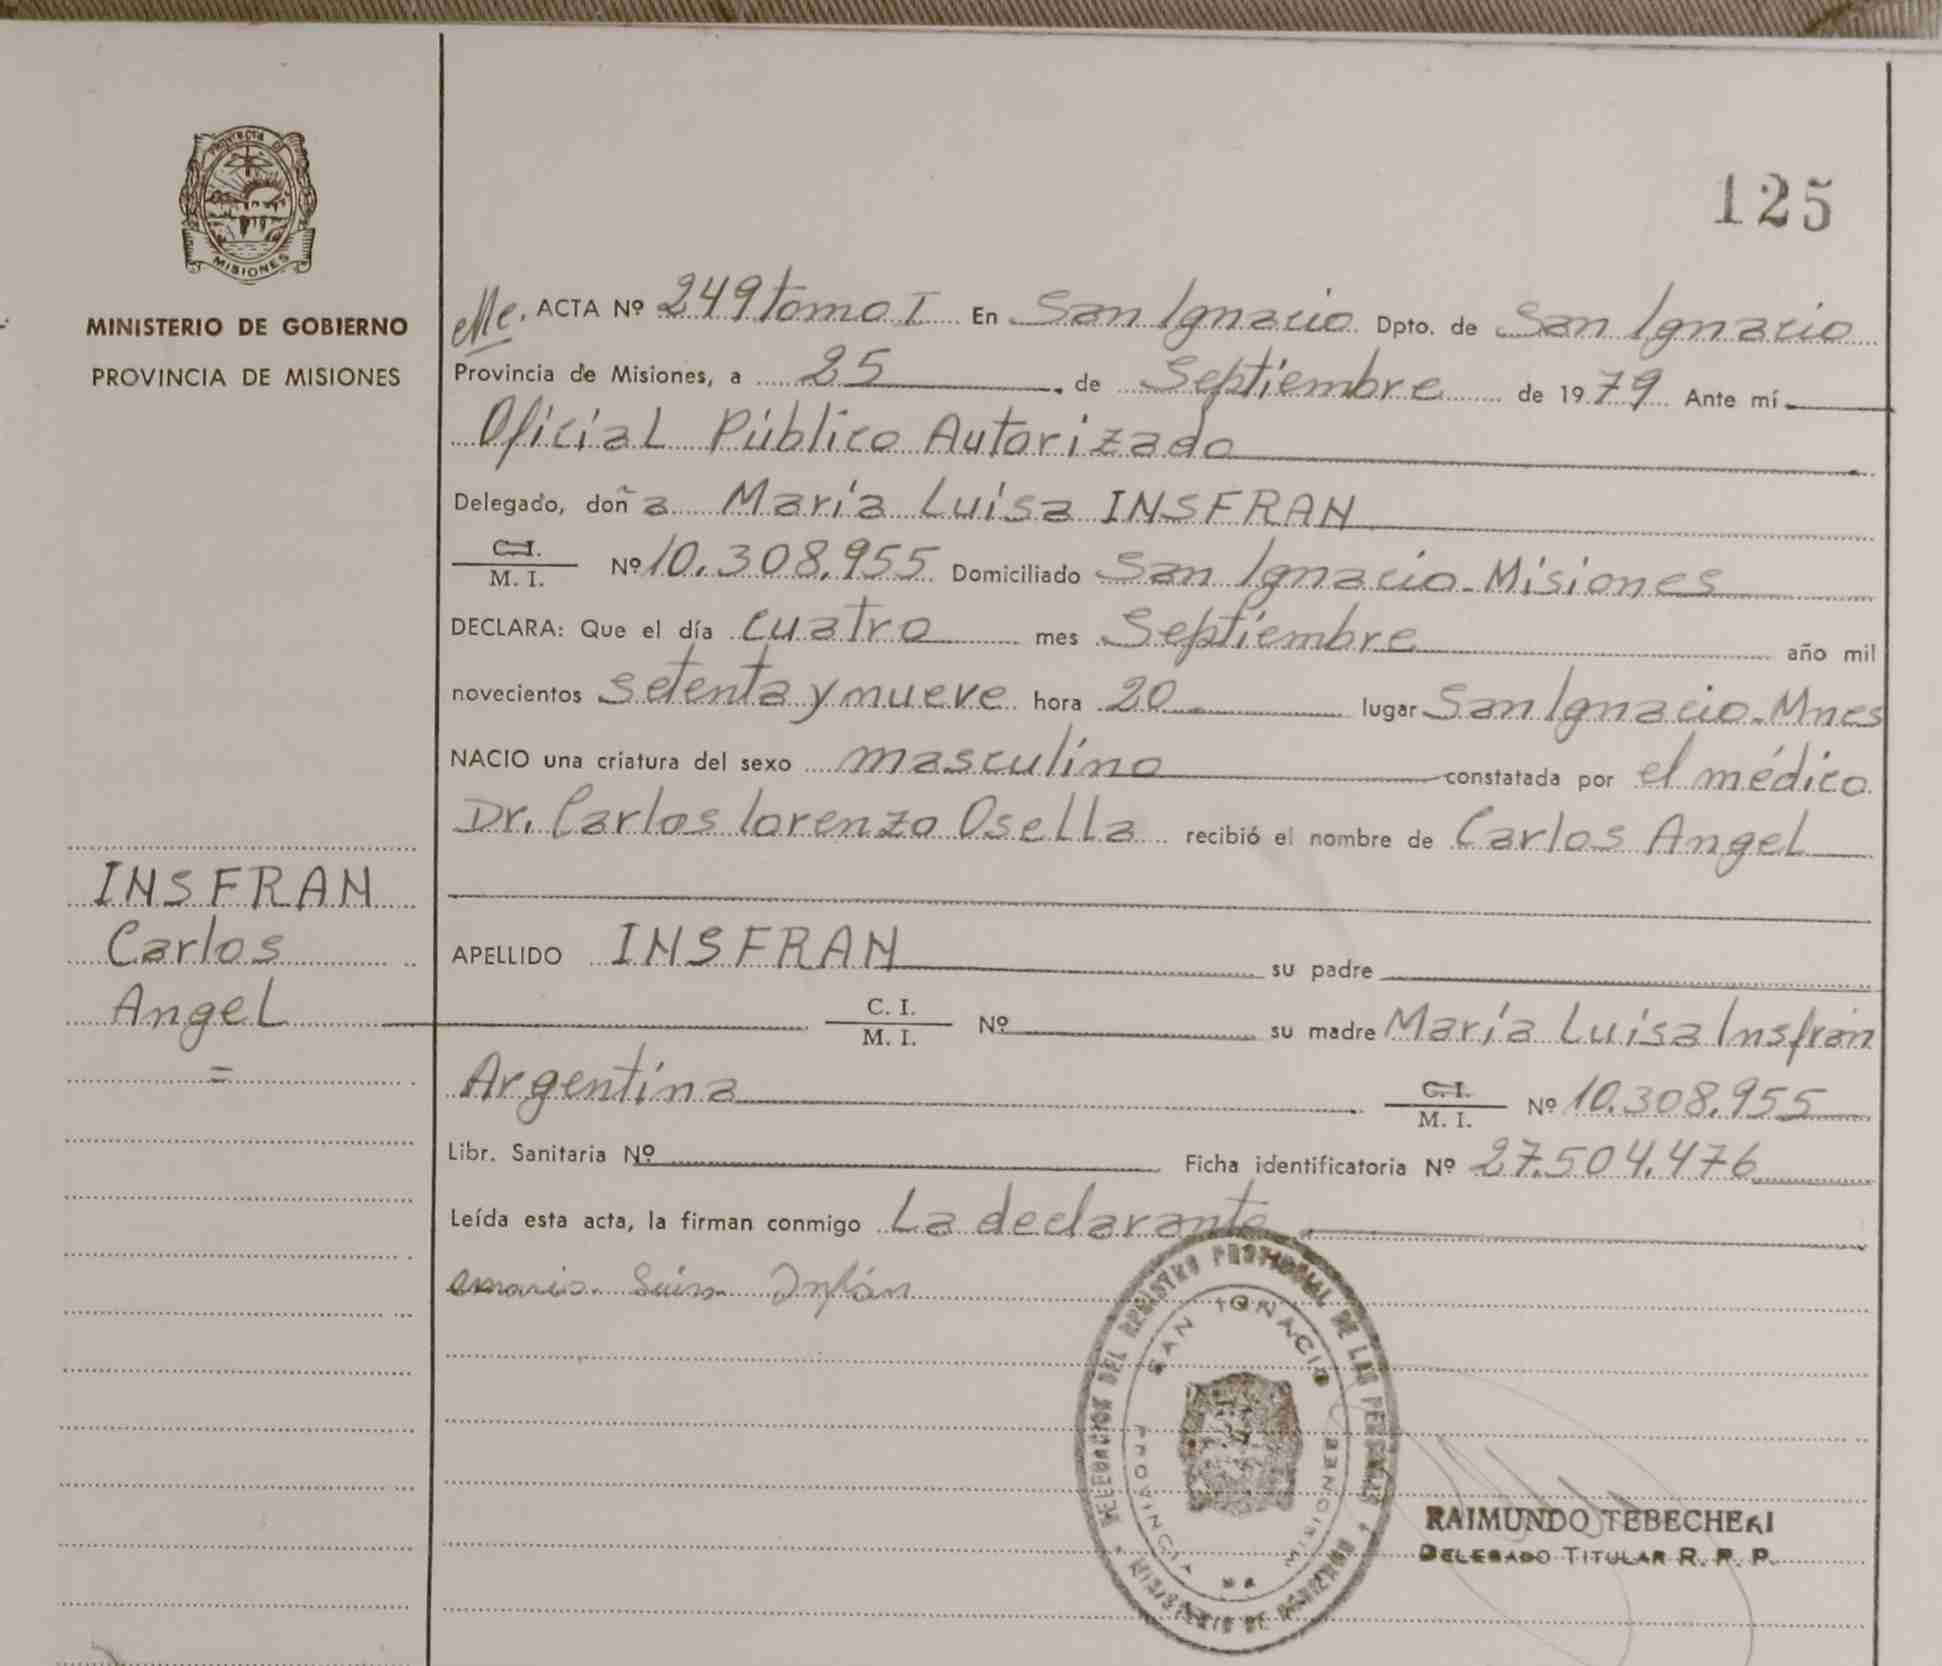 PROVINCIA DE
MISIONES
MINISTERIO DE GOBIERNO
PROVINCIA DE MISIONES
125
ACTA Nº 249 tomo I En San Ignacio Dpto. de San Ignacio
Provincia de Misiones, a 25 de Septiembre de 1979 Ante mí
Oficial Público Autorizado
Delegado, doña María Luisa INSFRAN
C.I.
M. I. Nº 10.308.955 Domiciliado San Ignacio-Misiones
DECLARA: Que el día cuatro mes Septiembre año mil
novecientos setenta y nueve hora 20 lugar San Ignacio-Mnes
NACIO una criatura del sexo masculino constatada por el médico
Dr. Carlos Lorenzo Osella recibió el nombre de Carlos Angel
INSFRAN
Carlos
Angel
=
APELLIDO INSFRAN su padre
C. I.
M. I. Nº su madre María Luisa Insfrán
Argentina C.I.
M. I. Nº 10.308.955
Libr. Sanitaria Nº Ficha identificatoria Nº 27.504.476
Leída esta acta, la firman conmigo La declarante
DELEGACION DEL REGISTRO PROVINCIAL DE LAS PERSONAS
SAN IGNACIO
PROVINCIA DE MISIONES
MINISTERIO DE GOBIERNO
RAIMUNDO
DELEGADO TITULAR R. P. P.